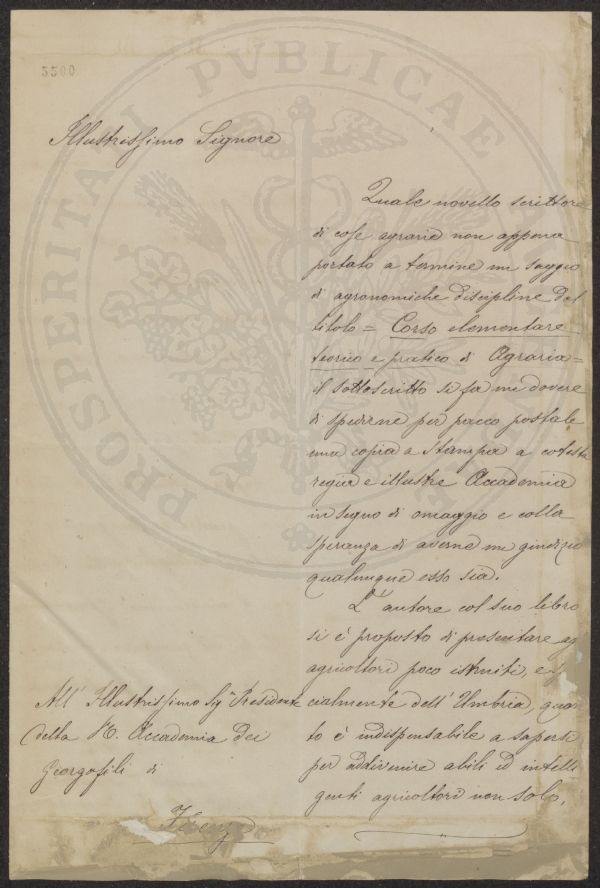 5500
PROSPERITATI PVBLICAE
Illustrissimo Signore
Quale novello scrittore
di cose agrarie non appena
portato a termine un saggio
di agronomiche discipline dal
titolo = Corso elementare
teorico e pratico di Agraria =
il sottoscritto si fa un dovere
di spedirne per pacco postale
una copia a stampa a cotesta
regia e illustre Accademia
in segno di omaggio e colla
speranza di averne un giudizio
qualunque esso sia.
L'autore col suo libro
si è proposto di presentare ag
agricoltori poco istruiti, e
cialmente dell'Umbria, quan
to è indispensabile a sapersi
per addivenire abili ed intelli
genti agricoltori non solo,
All' Illustrissimo Sigr Presidente
della R. Accademia dei
Georgofili di
Firenze